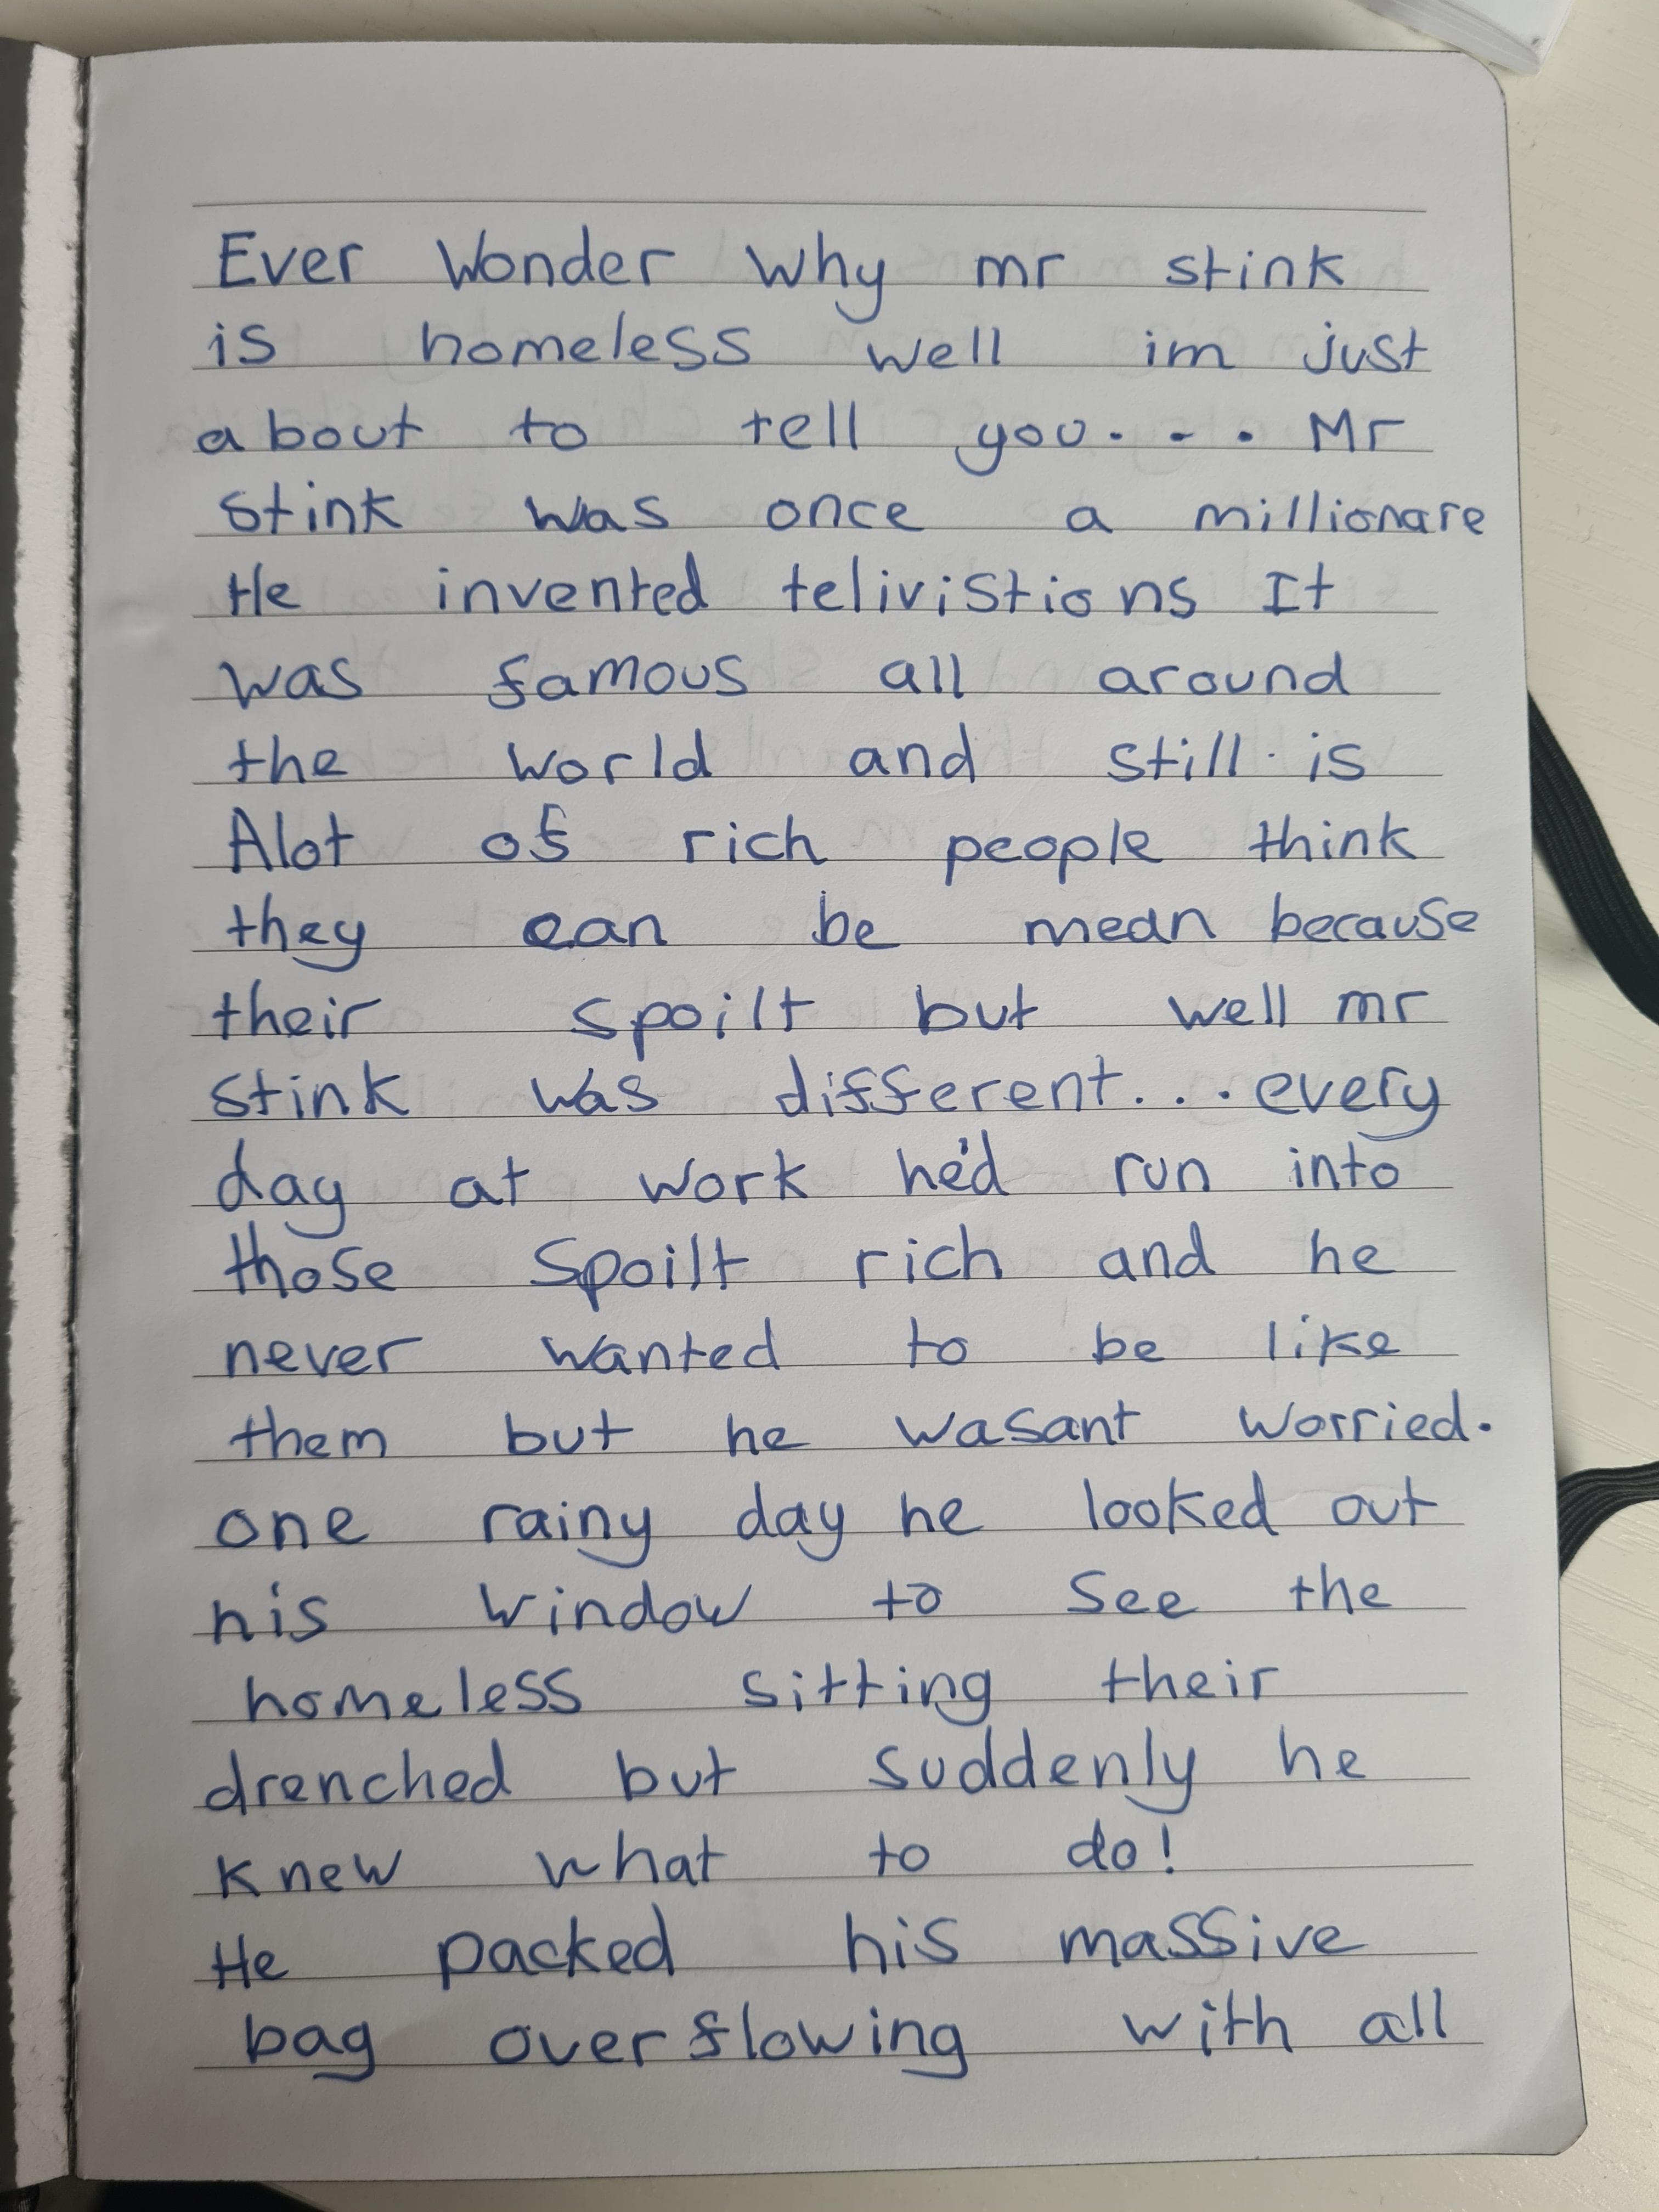 Ever Wonder Why mr stink
is homeless well im just
about to tell you... Mr
Stink was once a millionare
He invented telivistions It
was famous all around
the world and still is
Alot of rich people think
they can be mean because
their spoilt but well mr
stink was different... every
day at work he'd run into
those spoilt rich and he
never wanted to be like
them but he wasant worried.
one rainy day he looked out
his window to see the
homeless sitting their
drenched but suddenly he
knew what to do!
He packed his massive
bag overflowing with all